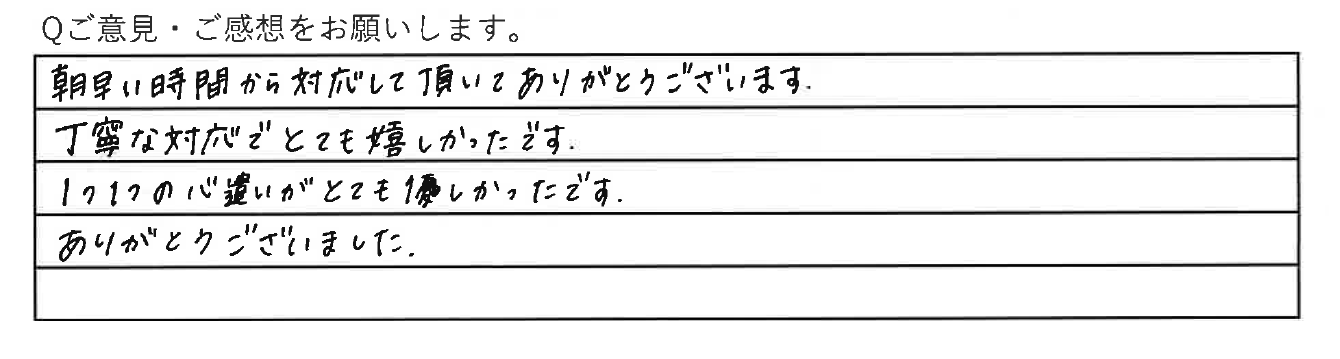 Qご意見・ご感想をお願いします。
朝早い時間から対応して頂いてありがとうございます.
丁寧な対応でとても嬉しかったです.
1つ1つの心遣いがとても優しかったです.
ありがとうございました.